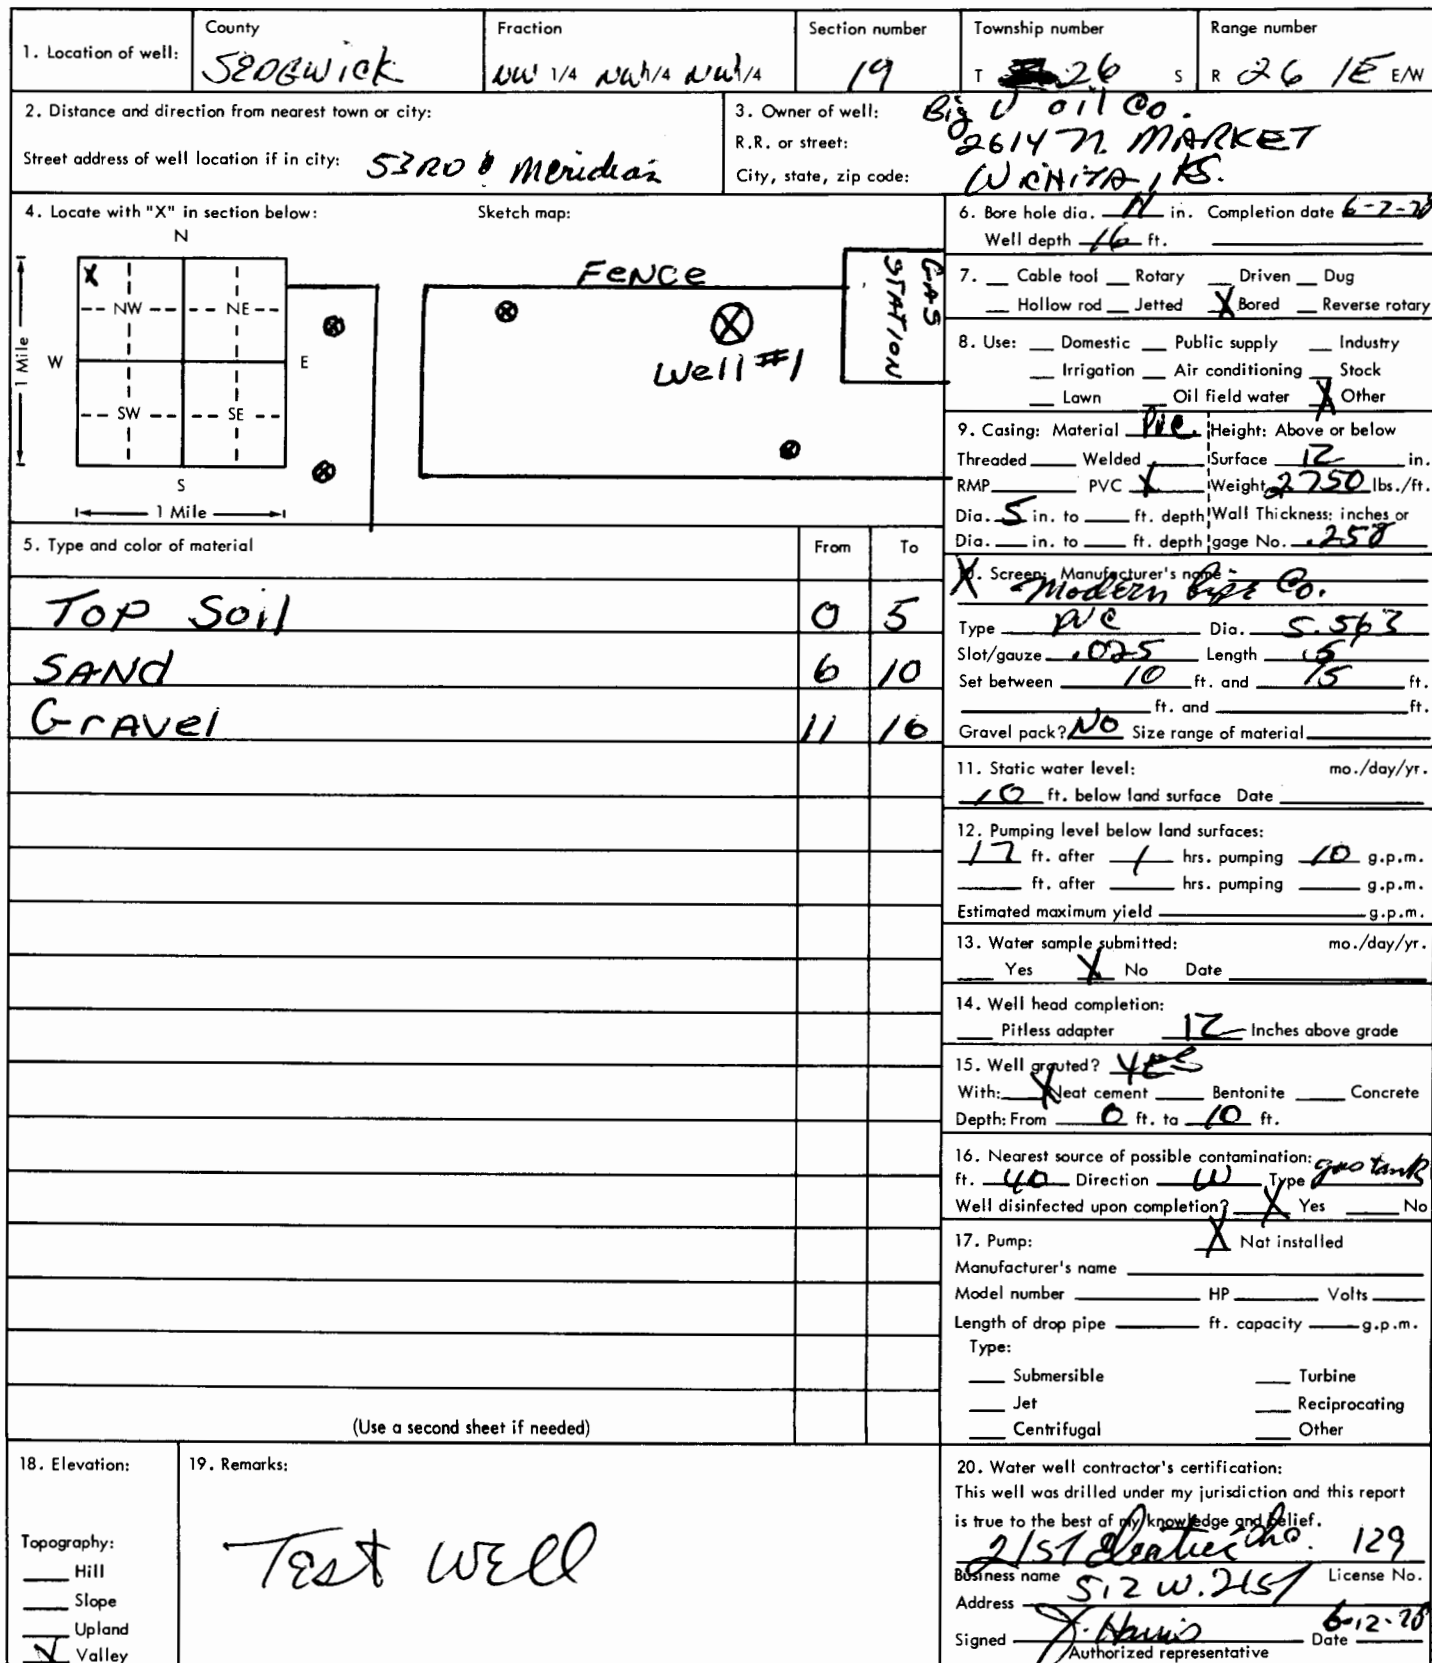 1. Location of well:
County
SEDGWICK
Fraction
NW 1/4 NW 1/4 NW 1/4
Section number
19
Township number
T 26 S
Range number
R 26 1E E/W
2. Distance and direction from nearest town or city:
Street address of well location if in city: 53RD & Meridian
3. Owner of well: Big V Oil Co.
R.R. or street: 2614 N. MARKET
City, state, zip code: WICHITA, KS.
4. Locate with "X" in section below:
N
X
NW NE
W E
SW SE
S
1 Mile
1 Mile
Sketch map:
FENCE
GAS STATION
Well #1
5. Type and color of material From To
TOP SOIL 0 5
SAND 6 10
GrAVel 11 16
(Use a second sheet if needed)
6. Bore hole dia. in. Completion date
Well depth 16 ft.
7. Cable tool Rotary Driven Dug
Hollow rod Jetted X Bored Reverse rotary
8. Use: Domestic Public supply Industry
Irrigation Air conditioning Stock
Lawn Oil field water X Other
9. Casing: Material PVC. Height: Above or below
Threaded Welded Surface 12 in.
RMP PVC X Weight 2750 lbs./ft.
Dia. 5 in. to ft. depth Wall Thickness: inches or
Dia. in. to ft. depth gage No. .258
X 10. Screen: Manufacturer's name
Modern Pipe Co.
Type PVC Dia. 5.563
Slot/gauze .025 Length 5
Set between 10 ft. and 15 ft.
ft. and ft.
Gravel pack? NO Size range of material
11. Static water level: mo./day/yr.
10 ft. below land surface Date
12. Pumping level below land surfaces:
12 ft. after 1 hrs. pumping 10 g.p.m.
ft. after hrs. pumping g.p.m.
Estimated maximum yield g.p.m.
13. Water sample submitted: mo./day/yr.
Yes X No Date
14. Well head completion:
Pitless adapter 12 Inches above grade
15. Well grouted? YES
With: X Neat cement Bentonite Concrete
Depth: From 0 ft. to 10 ft.
16. Nearest source of possible contamination:
ft. 40 Direction W Type gas tank
Well disinfected upon completion? X Yes No
17. Pump: X Not installed
Manufacturer's name
Model number HP Volts
Length of drop pipe ft. capacity g.p.m.
Type:
Submersible Turbine
Jet Reciprocating
Centrifugal Other
18. Elevation:
Topography:
Hill
Slope
Upland
X Valley
19. Remarks:
Test Well
20. Water well contractor's certification:
This well was drilled under my jurisdiction and this report
is true to the best of my knowledge and belief.
21ST 129
Business name License No.
Address 512 W. 21ST
Signed J. Harris Date
Authorized representative